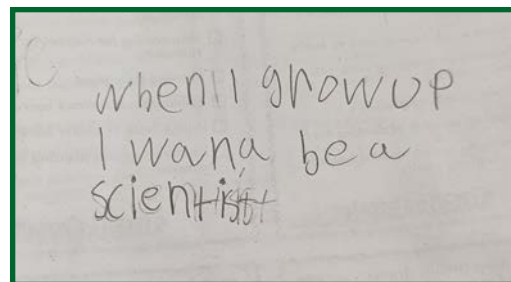 when I grow up
I wana be a
scientist